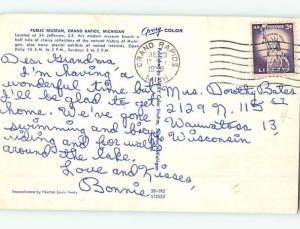 PUBLIC MUSEUM, GRAND RAPIDS, MICHIGAN
Located at 54 Jefferson, S.E. this modern museum boasts a
half mile of choice collections of the natural history of Michi-
gan, also many special exhibits of varied interests. Open
Daily 10 A.M. to 5 P.M. Sundays 2 to 5 P.M.
COLOR
GRAND RAPIDS
U.S. POSTAGE 3¢
LIBERTY
Dear Grandma,
I'm having a
wonderful time but
I'll be glad to get
home. We've gone
swimming and bicycle
riding and for walks
around the lake.
Love and Kisses,
Bonnie
Mrs. Dorothy Bates
2129 N. 115 ST
Wauwatosa 13,
Wisconsin
SB-195